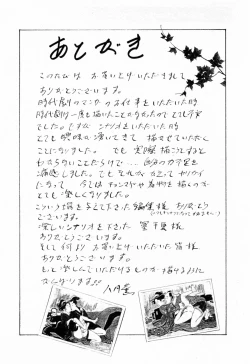 あとがき
このたびは お買い上げいただきまして
ありがとうございます。
時代劇のマンガのお仕事をいただいた時
時代劇は一度も描いたことがなかったのでとても不安
でした。でも シナリオをいただいた時
とても興味が湧いてきて 描かせていただく
ことになりました。 でも 実際描こうとすると
わからないことだらけで… 自分の力不足を
痛感しました。でも それが かえって ヤリガイ
になって 今では チョンマゲや着物を描くのが
とても楽しくなりました。
こういう場を与えて下さった編集様 ありがとう
ございます。
楽しいシナリオを下さった 様
ありがとうございます。
そして 何より お買い上げいただいた皆様
ありがとうございます。
もっと楽しんでいただけるものが描けるように
なりたいです。
八月薫